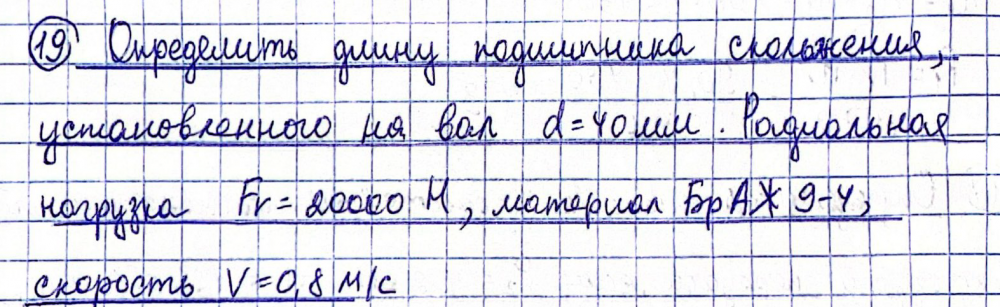 19) Определить длину подшипника скольжения,
установленного на вал d=40мм. Радиальная
нагрузка Fr=20000 Н, материал БрАЖ 9-4,
скорость V=0,8 м/с